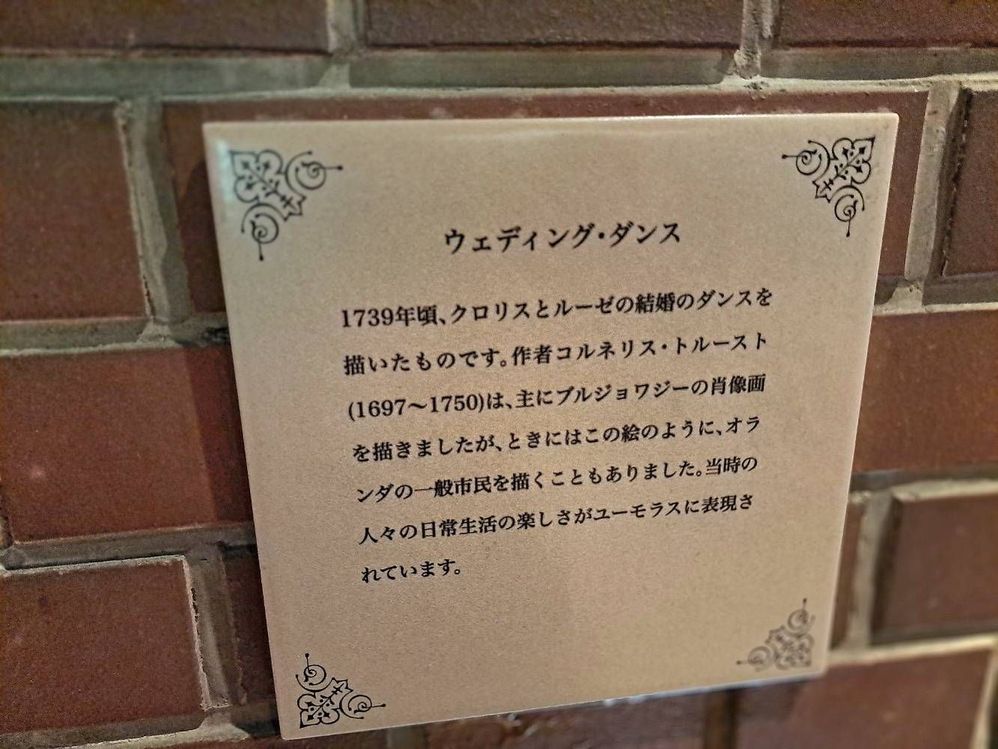 ウェディング・ダンス
1739年頃、クロリスとルーゼの結婚のダンスを
描いたものです。作者コルネリス・トルースト
(1697〜1750)は、主にブルジョワジーの肖像画
を描きましたが、ときにはこの絵のように、オラ
ンダの一般市民を描くこともありました。当時の
人々の日常生活の楽しさがユーモラスに表現さ
れています。